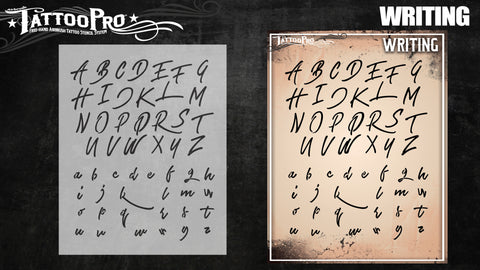 TATTOOPRO
FREE-HAND AIRBRUSH TATTOO STENCIL SYSTEM
WRITING
A B C D E F G
H I J K L M
N O P Q R S T
U V W X Y Z
a b c d e f g h
i j k l m n
o p q r s t
u v w x y z
TATTOOPRO
WRITING
A B C D E F G
H I J K L M
N O P Q R S T
U V W X Y Z
a b c d e f g h
i j k l m n
o p q r s t
u v w x y z